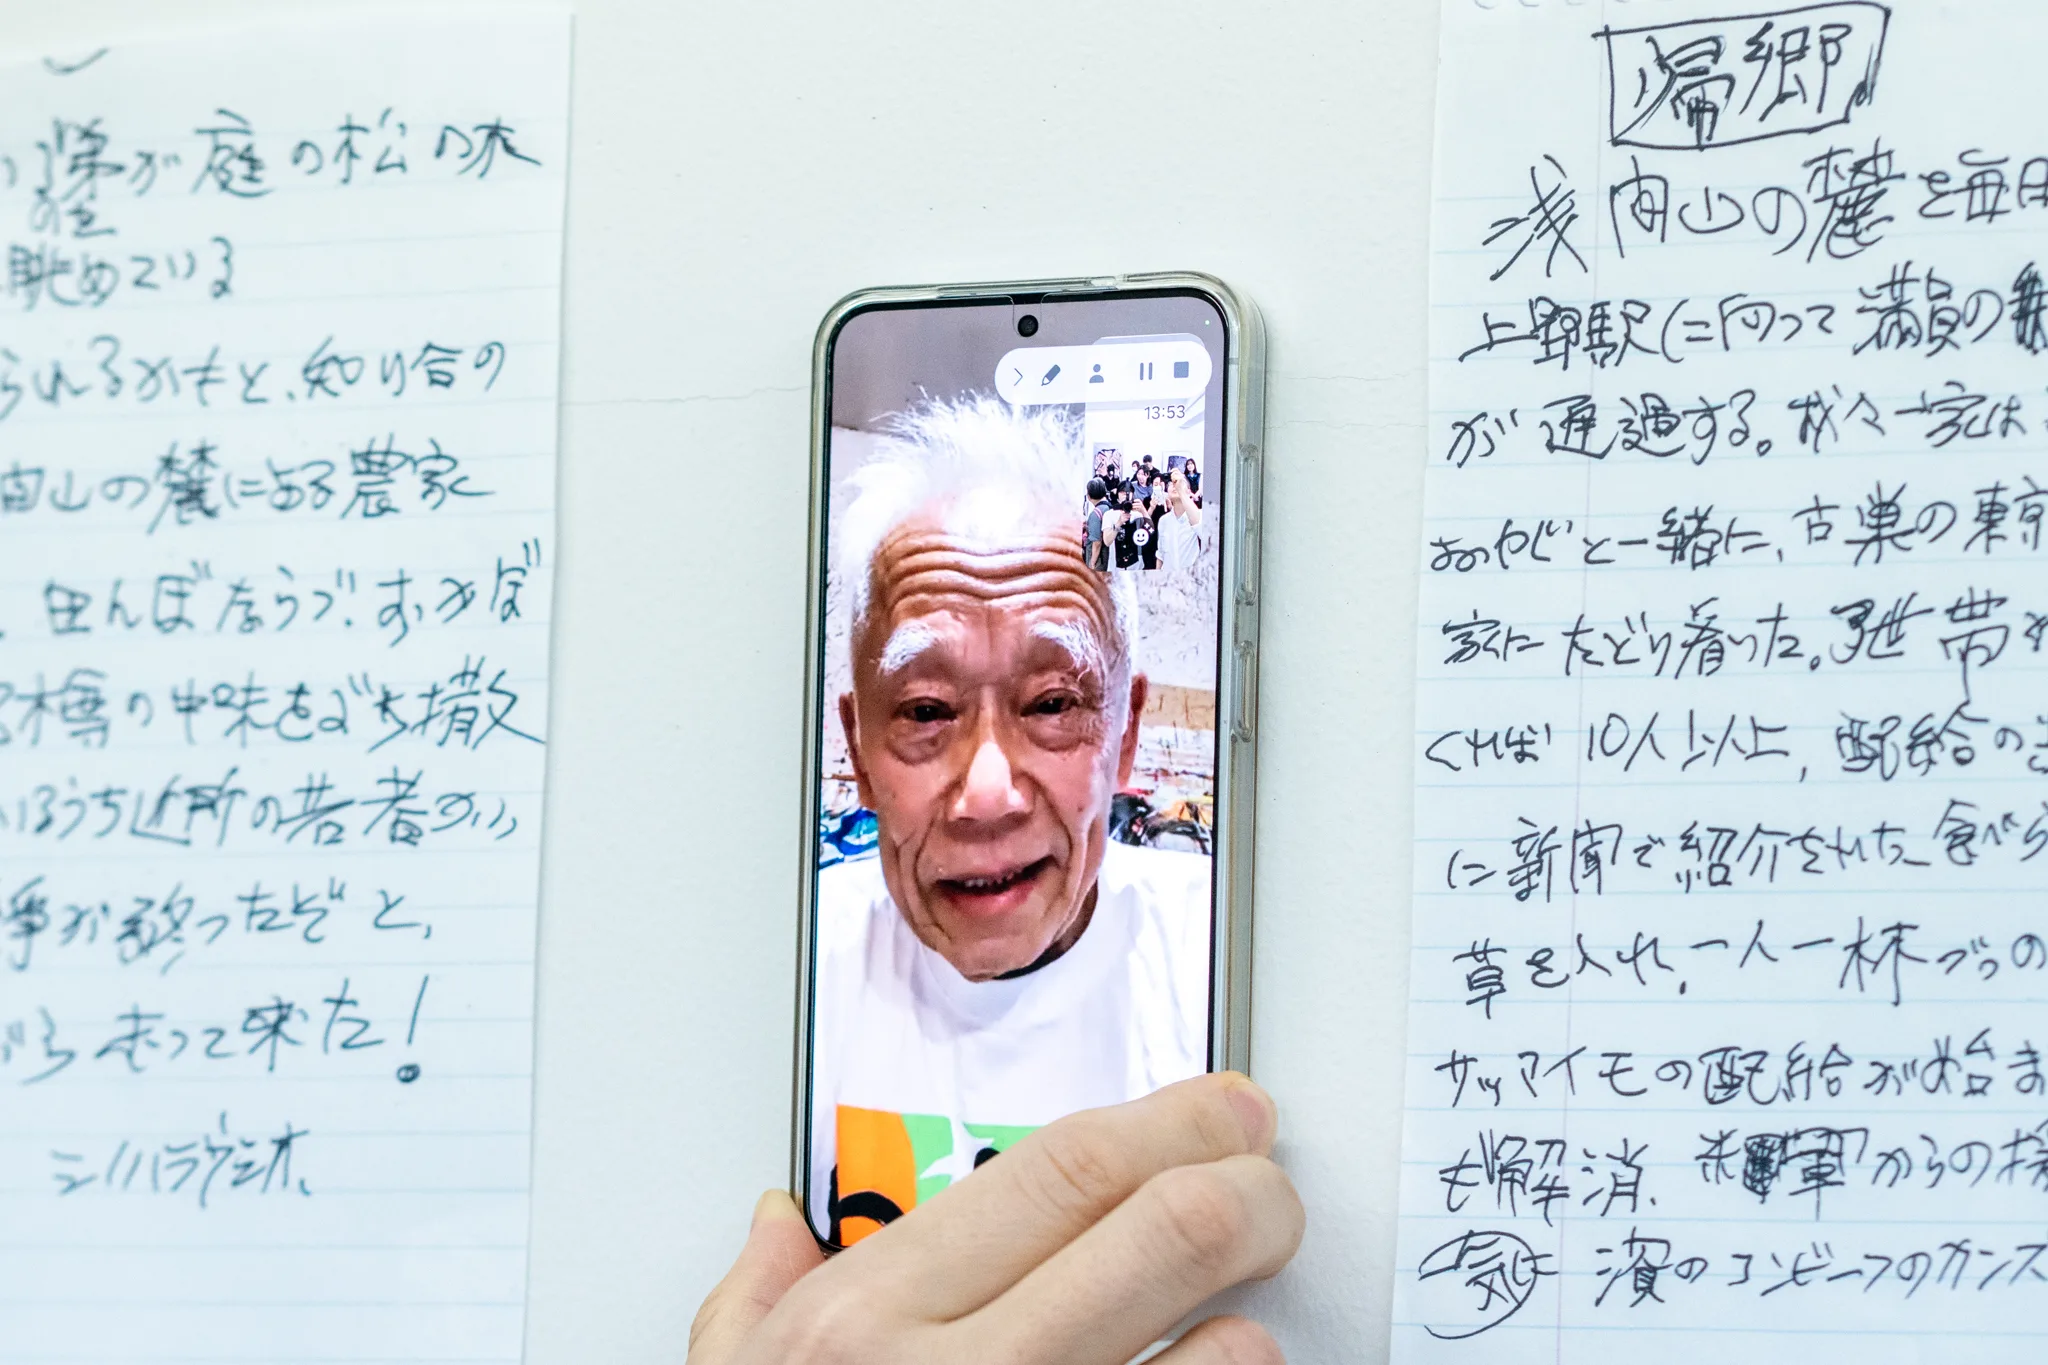 が庭の松の
のを
眺めている
られるかもと、知り合の
間山の麓にある農家
田んぼならび、すっぽ
樽の中味をぶち撒
いるうち近所の若者がいっ
争が終ったぞと、
がら走って来た!
シノハラウシオ、
13:53
帰郷
浅間山の麓を毎日
上野駅に向って満員の
が通過する。我々一家は
おやじと一緒に、古巣の東京
家にたどり着いた。7世帯
くれば10人以上、配給の
に新聞で紹介をされた食べ
草を入れ、一人一杯づつの
サツマイモの配給が始ま
も解消、米軍からの
一気に濱のコンビーフのカンズ